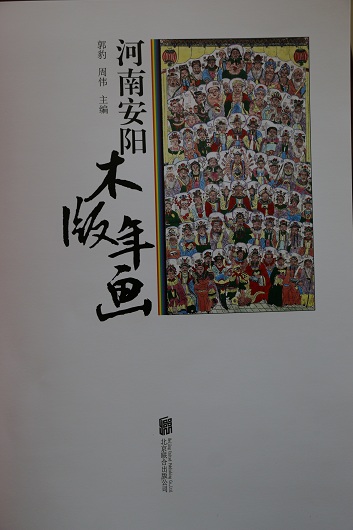 河南安阳
木版年画
郭豹 周伟 主编
北京联合出版公司
Beijing United Publishing Co.,Ltd.